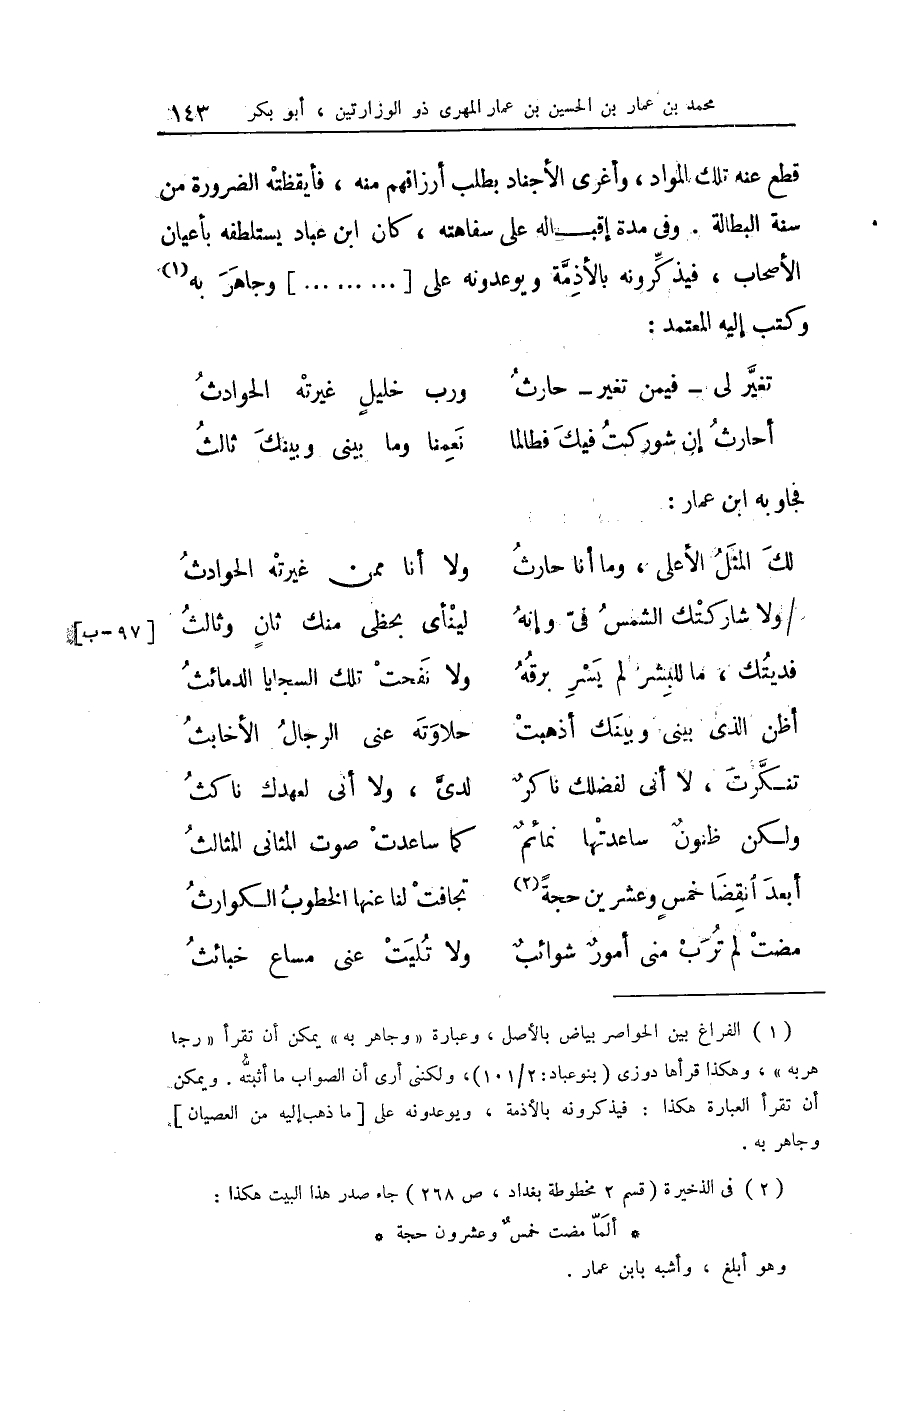 محمد بن عمار بن الحسين بن عمار المهرى ذو الوزارتين ، أبو بكر ١٤٣
قطع عنه تلك المواد ، وأغرى الأجناد بطلب أرزاقهم منه ، فأيقظتْه الضرورة من
سنة البطالة . وفى مدة إقبـــاله على سفاهته ، كان ابن عباد يستلطفه بأعيان
الأصحاب ، فيذكِّرونه بالأذِمَّة ويوعدونه على [ ... ... ... ] وجاهَرَ به(١)
وكتب إليه المعتمد :
تغيَّر لى – فيمن تغير – حارثُ ورب خليلٍ غيرتْه الحوادثُ
أحارثُ إن شوركتُ فيكَ فطالما نَعِمنا وما بينى وبينكَ ثالثُ
فجاوبه ابن عمار :
لكَ المثَلُ الأعلى ، وما أنا حارثُ ولا أنا ممن غيرتْه الحوادثُ
/ ولا شاركتْك الشمسُ فىّ وإنهُ لينْأى بحظى منك ثانٍ وثالثُ [ ٩٧-ب ]
فديتُك ، ما للبِشر لم يَسْرِ برقُهُ ولا نَفَحتْ تلك السجايا الدمائثُ
أظن الذى بينى وبينَك أذهبتْ حلاوَتَه عنى الرجالُ الأخابثُ
تنـكَّرتَ ، لا أنى لفضلك ناكرٌ لدىَّ ، ولا أنى لعهدك ناكثُ
ولـكن ظنونٌ ساعدتْها نمائمٌ كما ساعدتْ صوت المثانى المثالثُ
أبعدَ اْنقِضَا خمسٍ وعشرين حجةً(٢) تجافتْ لنا عنها الخطوبُ الـكوارثُ
مضتْ لم تُرَبْ منى أمورٌ شوائبٌ ولا تُليَتْ عنى مساع خبائثُ
( ١ ) الفراغ بين الحواصر بياض بالأصل ، وعبارة « وجاهر به » يمكن أن تقرأ « رجا
هربه » ، وهكذا قرأها دوزى ( بنوعباد: ١٠١/٢ )، ولكننى أرى أن الصواب ما أثبتُّه . ويمكن
أن تقرأ العبارة هكذا : فيذكرونه بالأذمة ، ويوعدونه على [ ما ذهب إليه من العصيان ] ،
وجاهر به .
( ٢ ) فى الذخيرة ( قسم ٢ مخطوطة بغداد ، ص ٢٦٨ ) جاء صدر هذا البيت هكذا :
* ألَمّاَ مضت خمسٌ وعشرون حجة *
وهو أبلغ ، وأشبه بابن عمار .